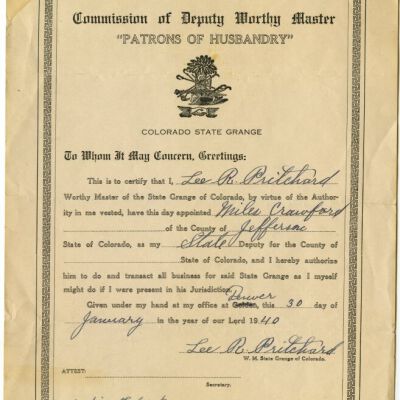 Commission of Deputy Worthy Master
"PATRONS OF HUSBANDRY"
COLORADO STATE GRANGE
To Whom It May Concern, Greetings:
This is to certify that I, Lee R. Pritchard
Worthy Master of the State Grange of Colorado, by virtue of the Author-
ity in me vested, have this day appointed Miles Crawford
of the County of Jefferson
State of Colorado, as my State Deputy for the County of
State of Colorado, and I hereby authorize
him to do and transact all business for said State Grange as I myself
might do if I were present in his Jurisdiction.
Denver
Given under my hand at my office at Golden, this 30 day of
January in the year of our Lord 1940
Lee R. Pritchard
W. M. State Grange of Colorado.
ATTEST:
Secretary.